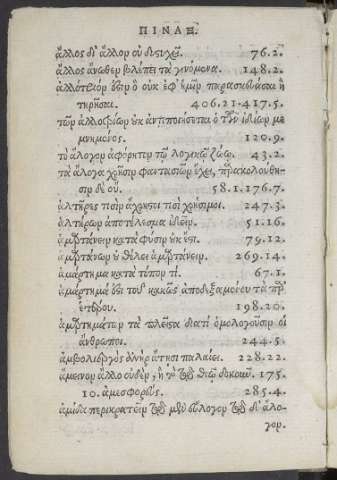 ΠΙΝΑΞ.
ἄλλος δι' ἄλλου οὐ δυστυχεῖ. 76.2.
ἄλλος ἄνωθεν βλέπει τὰ γινόμενα. 148.2.
ἀλλότριόν ἐστιν ὃ οὐκ ἐφ' ἡμῖν παρασκευάσαι ἢ
τηρῆσαι. 406.21-417.5.
τῶν ἀλλοτρίων οὐκ ἀντιποιήσεται ὁ τῶν ἰδίων με
μνημένος. 120.9.
τὸ ἄλογον ἀφόρητον τῷ λογικῷ ζώῳ. 43.2.
τὰ ἄλογα χρῆσιν φαντασιῶν ἔχει, παρακολούθη-
σιν δὲ οὔ. 58.1.176.7.
ἁλτῆρες τισὶν ἄχρηστοι τισὶ χρήσιμοι. 247.3.
ἁλτήρων ἀποτέλεσμα ἰδεῖν. 51.16.
ἁμαρτάνειν κατὰ φύσιν οὐκ ἔστι. 79.12.
ἁμαρτάνων οὐ θέλει ἁμαρτάνειν. 269.14.
ἁμάρτημα κατὰ τύπον τί. 67.1.
ἁμάρτημά ἐστι τοῦ κακῶς ἀποδεξαμένου τὰ παρ'
ἑτέρου. 198.20.
ἁμαρτημάτων τὰ πλεῖστα διατί ὁμολογοῦσιν οἱ
ἄνθρωποι. 244.5.
ἀμβολιεργὸς ἀνὴρ ἄτῃσι παλαίει. 228.22.
ἄμεινον ἄλλο οὐδὲν, ἢ τὸ τῷ θεῷ δοκοῦν. 175.
10. ἀμεσφορεῖς 285.4.
περικρατεῖν τοῦ μὲν εὔλογον τοῦ δ' ἄλο-
γον.